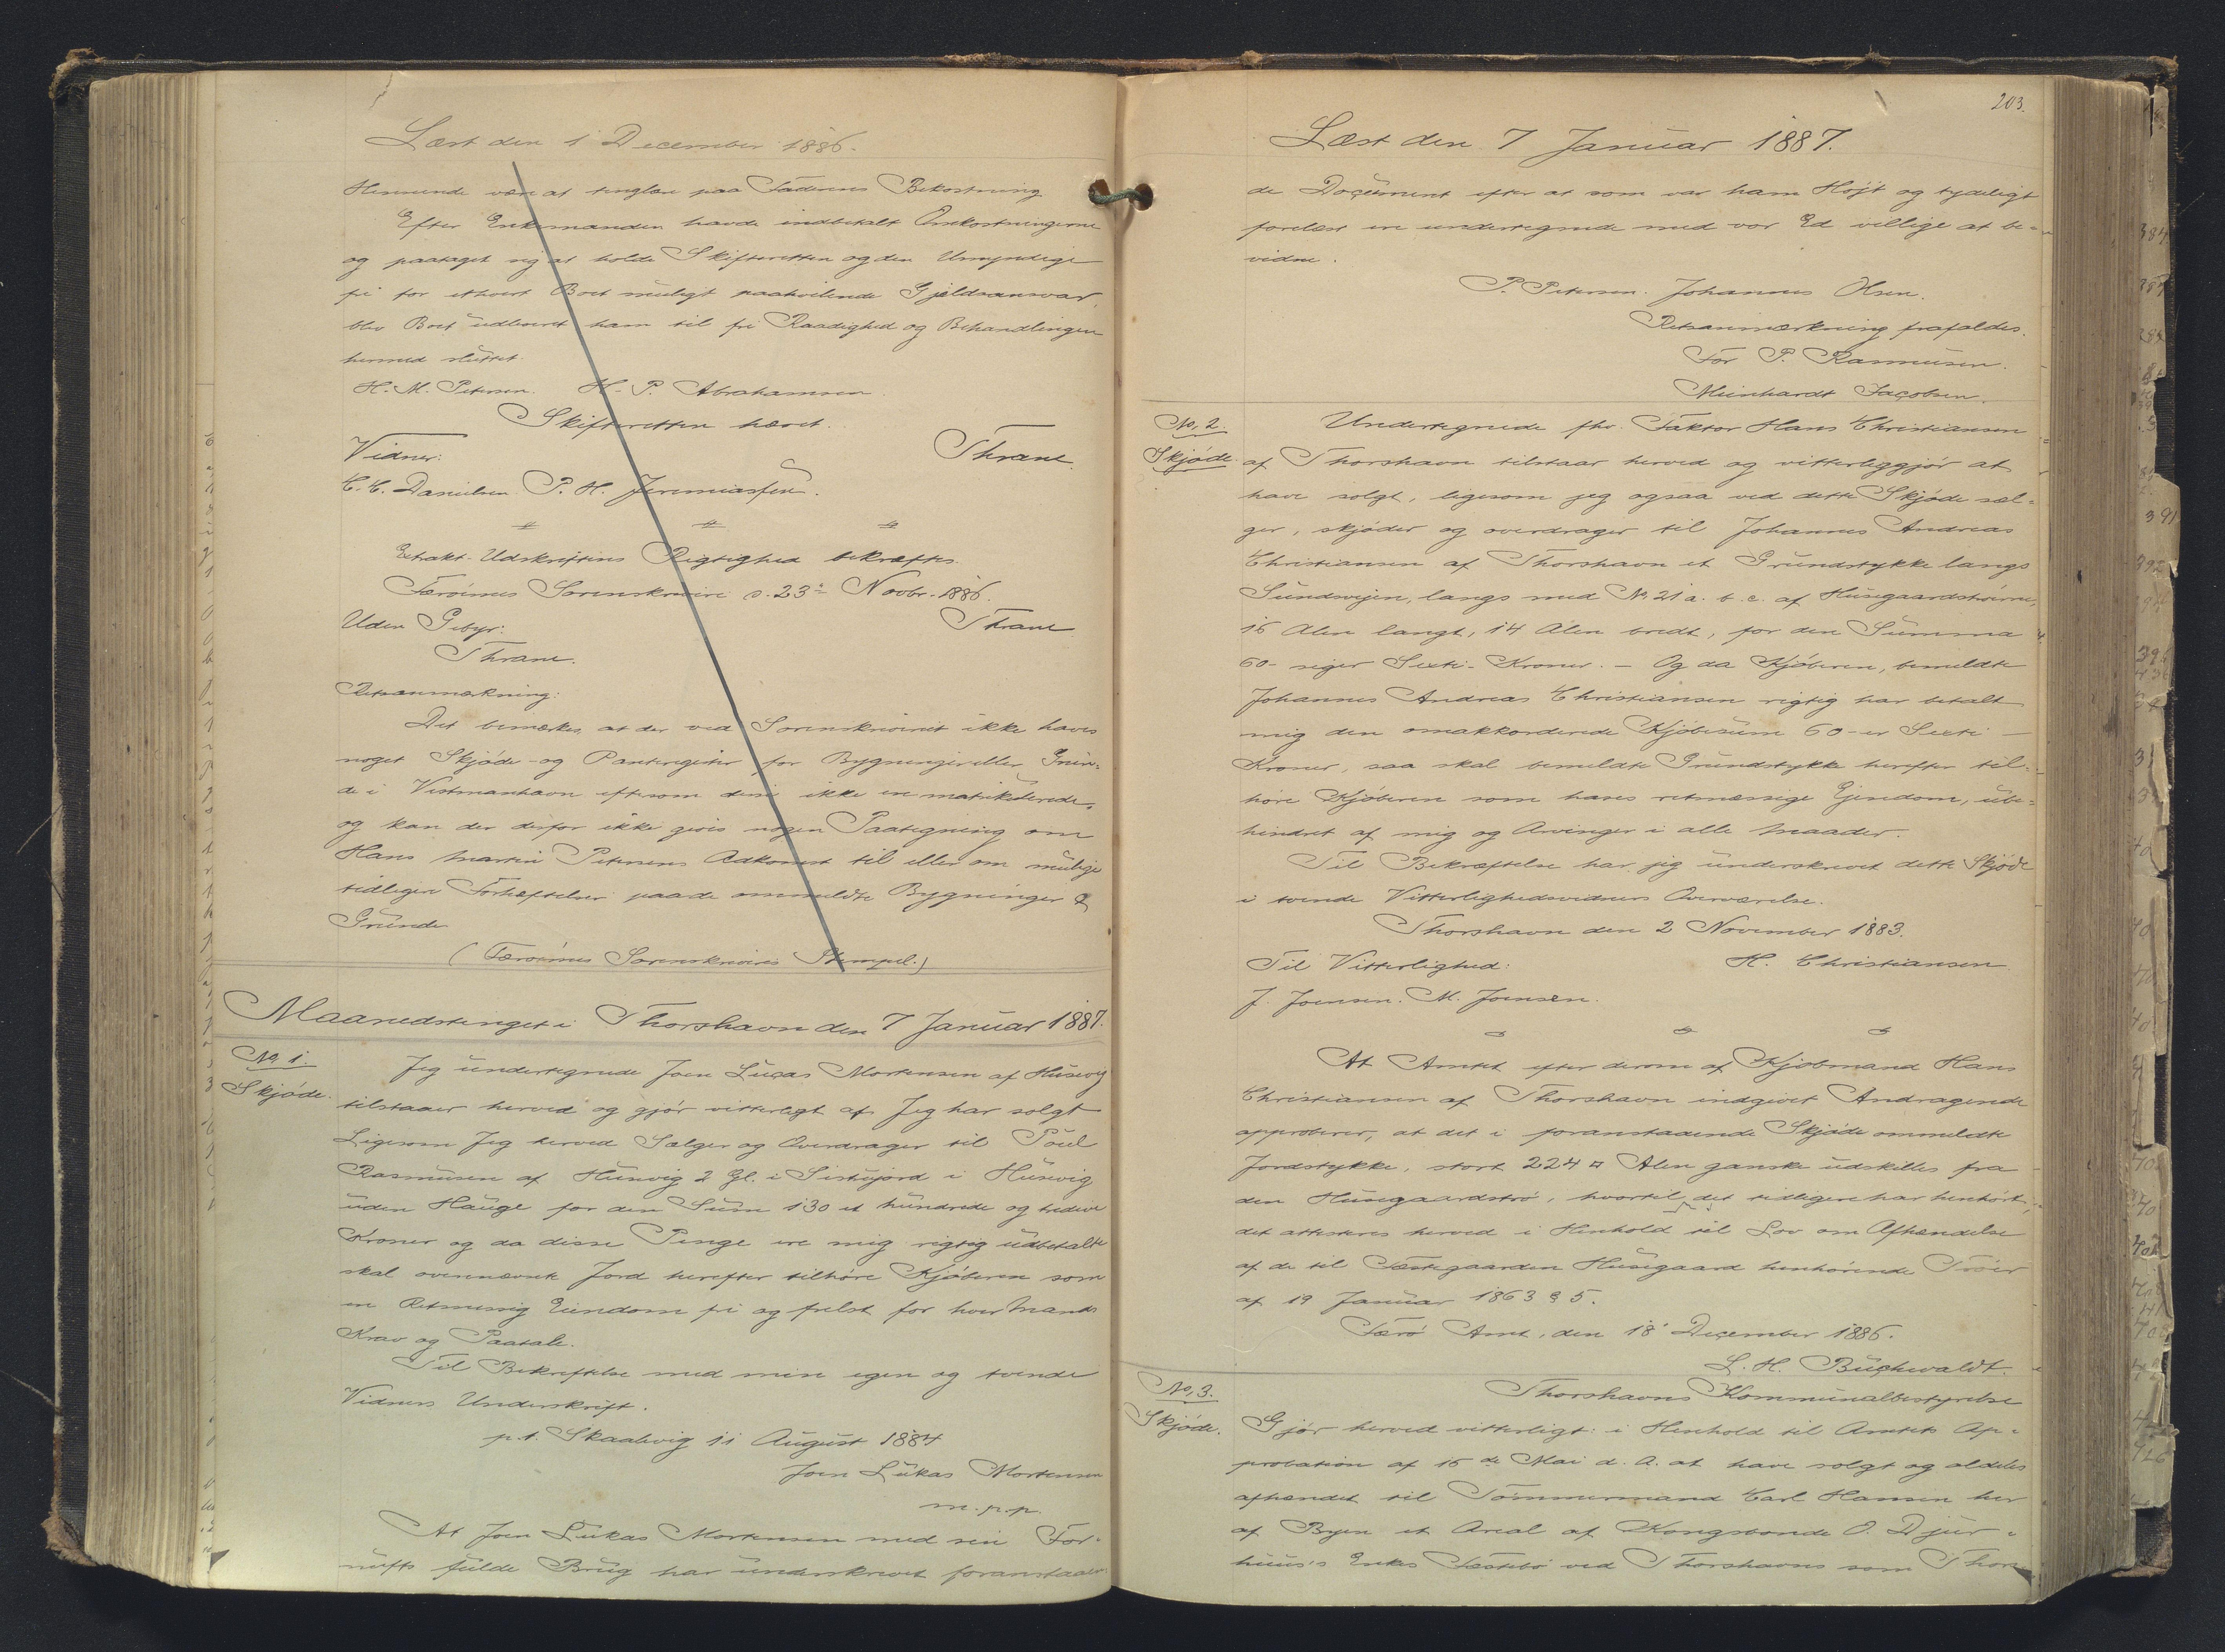 Læst den 1 December 1886.
Hemmende være at tinglæse paa Faderens Bekostning
Efter Enkemanden havde indbetalt Omkostningerne
og paataget sig at holde Skifteretten og den Umyndige
fri for ethvert Boet muligt paahvilende Gjældsansvar,
blev Boet udleveret ham til fri Raadighed og Behandlingen
hermed sluttet.
H. M. Petersen. H. P. Abrahamsen.
Skifteretten hævet.
Vidner: Thrane.
C. C. Danielsen P. H. Jeremiassen.
Extrakt-Udskriftens Rigtighed bekræftes.
Færöernes Sorenskriveri d. 23 Novbr. 1886.
Uden Gebyr: Thrane
Thrane.
Retsanmærkning:
Det bemærkes, at der ved Sorenskriveriet ikke haves
noget Skjøde- og Panteregister for Bygninger eller Grün-
de i Vestmanhavn eftersom disse ikke ere matrikulerede,
og kan der derfor ikke gives nogen Paategning om
Hans Martin Petersens Adkomst til eller om mulige
tidligere Forhæftelser paa de ommeldte Bygninger &
Grunde
(Færöernes Sorenskriveris Stempel.)
Maanedstinget i Thorshavn den 7 Januar 1887.
No, 1. Jeg undertegnede Joen Lucas Mortensen af Husevig
Skjøde. tilstaaer herved og gjør vitterligt at Jeg har solgt
Ligesom Jeg herved Sælger og Overdrager til Poul
Rasmusen af Husevig 2 Gl. i Sistujord i Husevig
uden Hauge for den Sum 130 et hundrede og tredive
Kroner og da disse Penge ere mig rigtig udbetalte
skal ovennævnte Jord herefter tilhøre Kjøberen som
en Retmessig Eiendom fri og frelst for hver Mands
Krav og Paatale.
Til Bekreftelse med min egen og tvende
Vidners Underskrift.
p.t. Skaalevig 11 August 1884
Joen Lukas Mortensen
m. p. p.
At Joen Lukas Mortensen med sin For-
nufts fulde Brug har underskrevet foranstaaen-
203.
Læst den 7 Januar 1887.
de Document efter at som var ham Højt og tydeligt
forelæst ere undertegnede med vor Ed villige at be-
vidne.
P. Petersen. Johannes Olsen.
Retsanmærkning frafaldes.
For P. Rasmusen.
Meinhardt Jacobsen.
No, 2. Undertegnede fhv. Faktor Hans Christiansen
Skjøde. af Thorshavn tilstaar herved og vitterliggjør at
have solgt, ligesom jeg ogsaa ved dette Skjøde sæl-
ger, skjøder og overdrager til Johannes Andreas
Christiansen af Thorshavn et Grundstykke langs
Sundsvejen, langs med No. 21 a. b. c. af Husegaardstrøerne,
16 Alen langt, 14 Alen bredt, for den Summa
60- siger Sexti- Kroner. – Og da Kjøberen, bemeldte
Johannes Andreas Christiansen rigtig har betalt
mig den omakkorderede Kjøbesum 60- er Sexti –
Kroner, saa skal bemeldte Grundstykke herefter til-
høre Kjøberen som hans retmæssige Ejendom, ube-
hindret af mig og Arvinger i alle Maader.
Til Bekræftelse har jeg underskrevet dette Skjøde
i tvende Vitterlighedsvidners Overværelse.
Thorshavn den 2 November 1883.
Til Vitterlighed: H. Christiansen
J. Joensen. M. Joensen.
At Amtet efter derom af Kjøbmand Hans
Christiansen af Thorshavn indgivet Andragende
approberer, at det i foranstaaende Skjøde ommeldte
Jordstykke, stort 224 □ Alen ganske udskilles fra
den Husegaardstrø, hvortil det tidligere har henhørt,
det attesteres herved i Henhold til Lov om Afhændelse
af de til Fæstegaarden Husegaard henhørende Trøer
af 19 Januar 1863 § 5.
Færø Amt, den 18 December 1886.
L. H. Buchwaldt.
No, 3. Thorshavns Kommunalbestyrelse
Skjøde. Gjør herved vitterligt: i Henhold til Amtets Ap-
probation af 16de Mai d. A. at have solgt og aldeles
afhændet til Tømmermand Carl Hansen her
af Byen et Areal af Kongsbonde O. Djur-
huus's Enkes Fæstebø ved Thorshavns som Thors